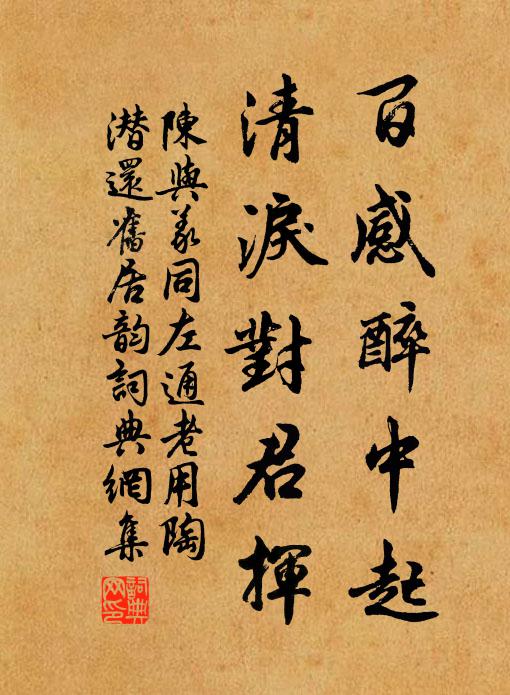 百感醉中起
清淚對君揮
陳與義同左通老用陶
潛還舊居韵詞典網集
詞典網印